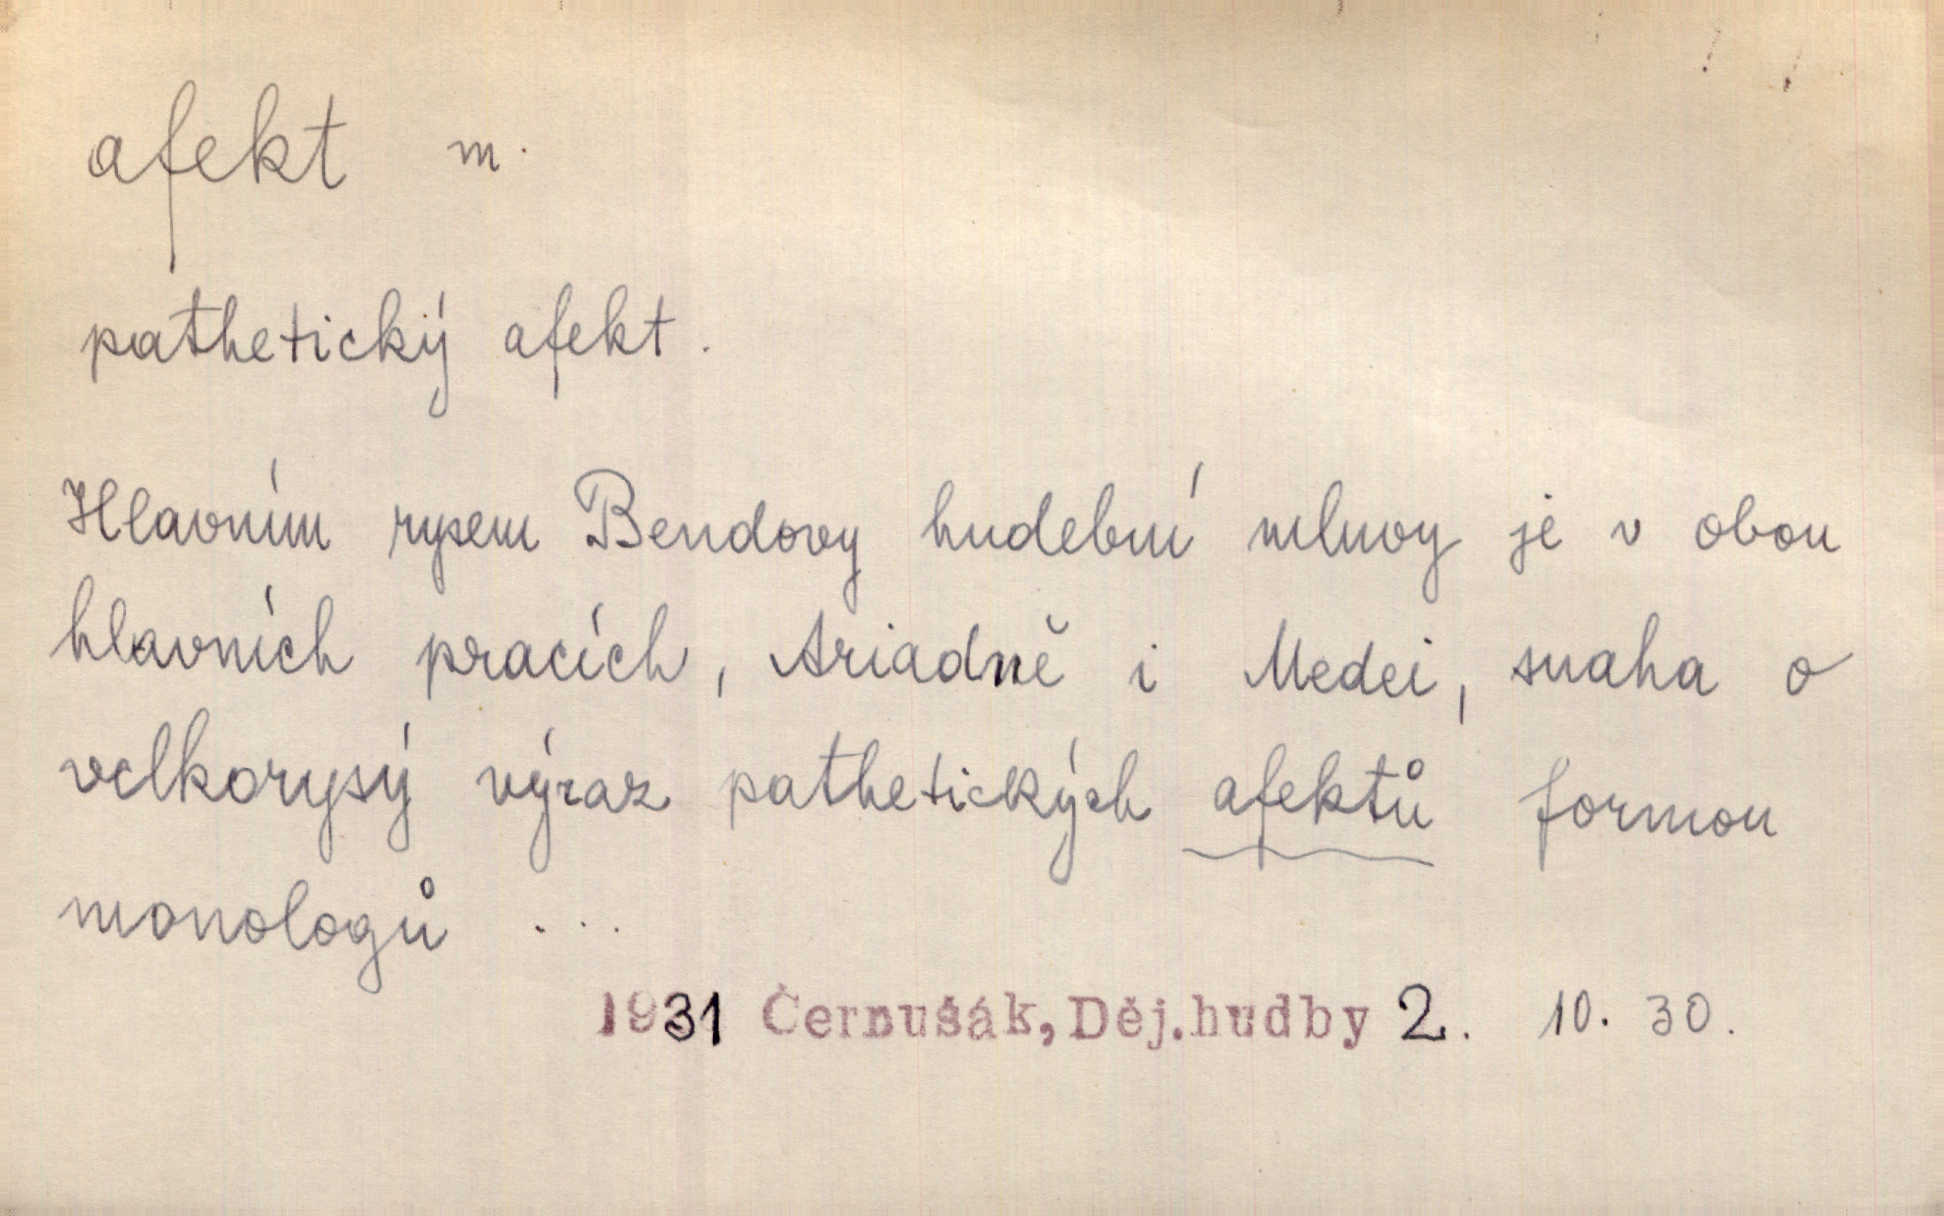 afekt m.
pathetický afekt.
Hlavním rysem Bendovy hudební mluvy je v obou
hlavních pracích, Ariadně i Medei, snaha o
velkorysý výraz pathetických afektů formou
monologů ...
1931 Černušák, Děj. hudby 2. 10. 30.